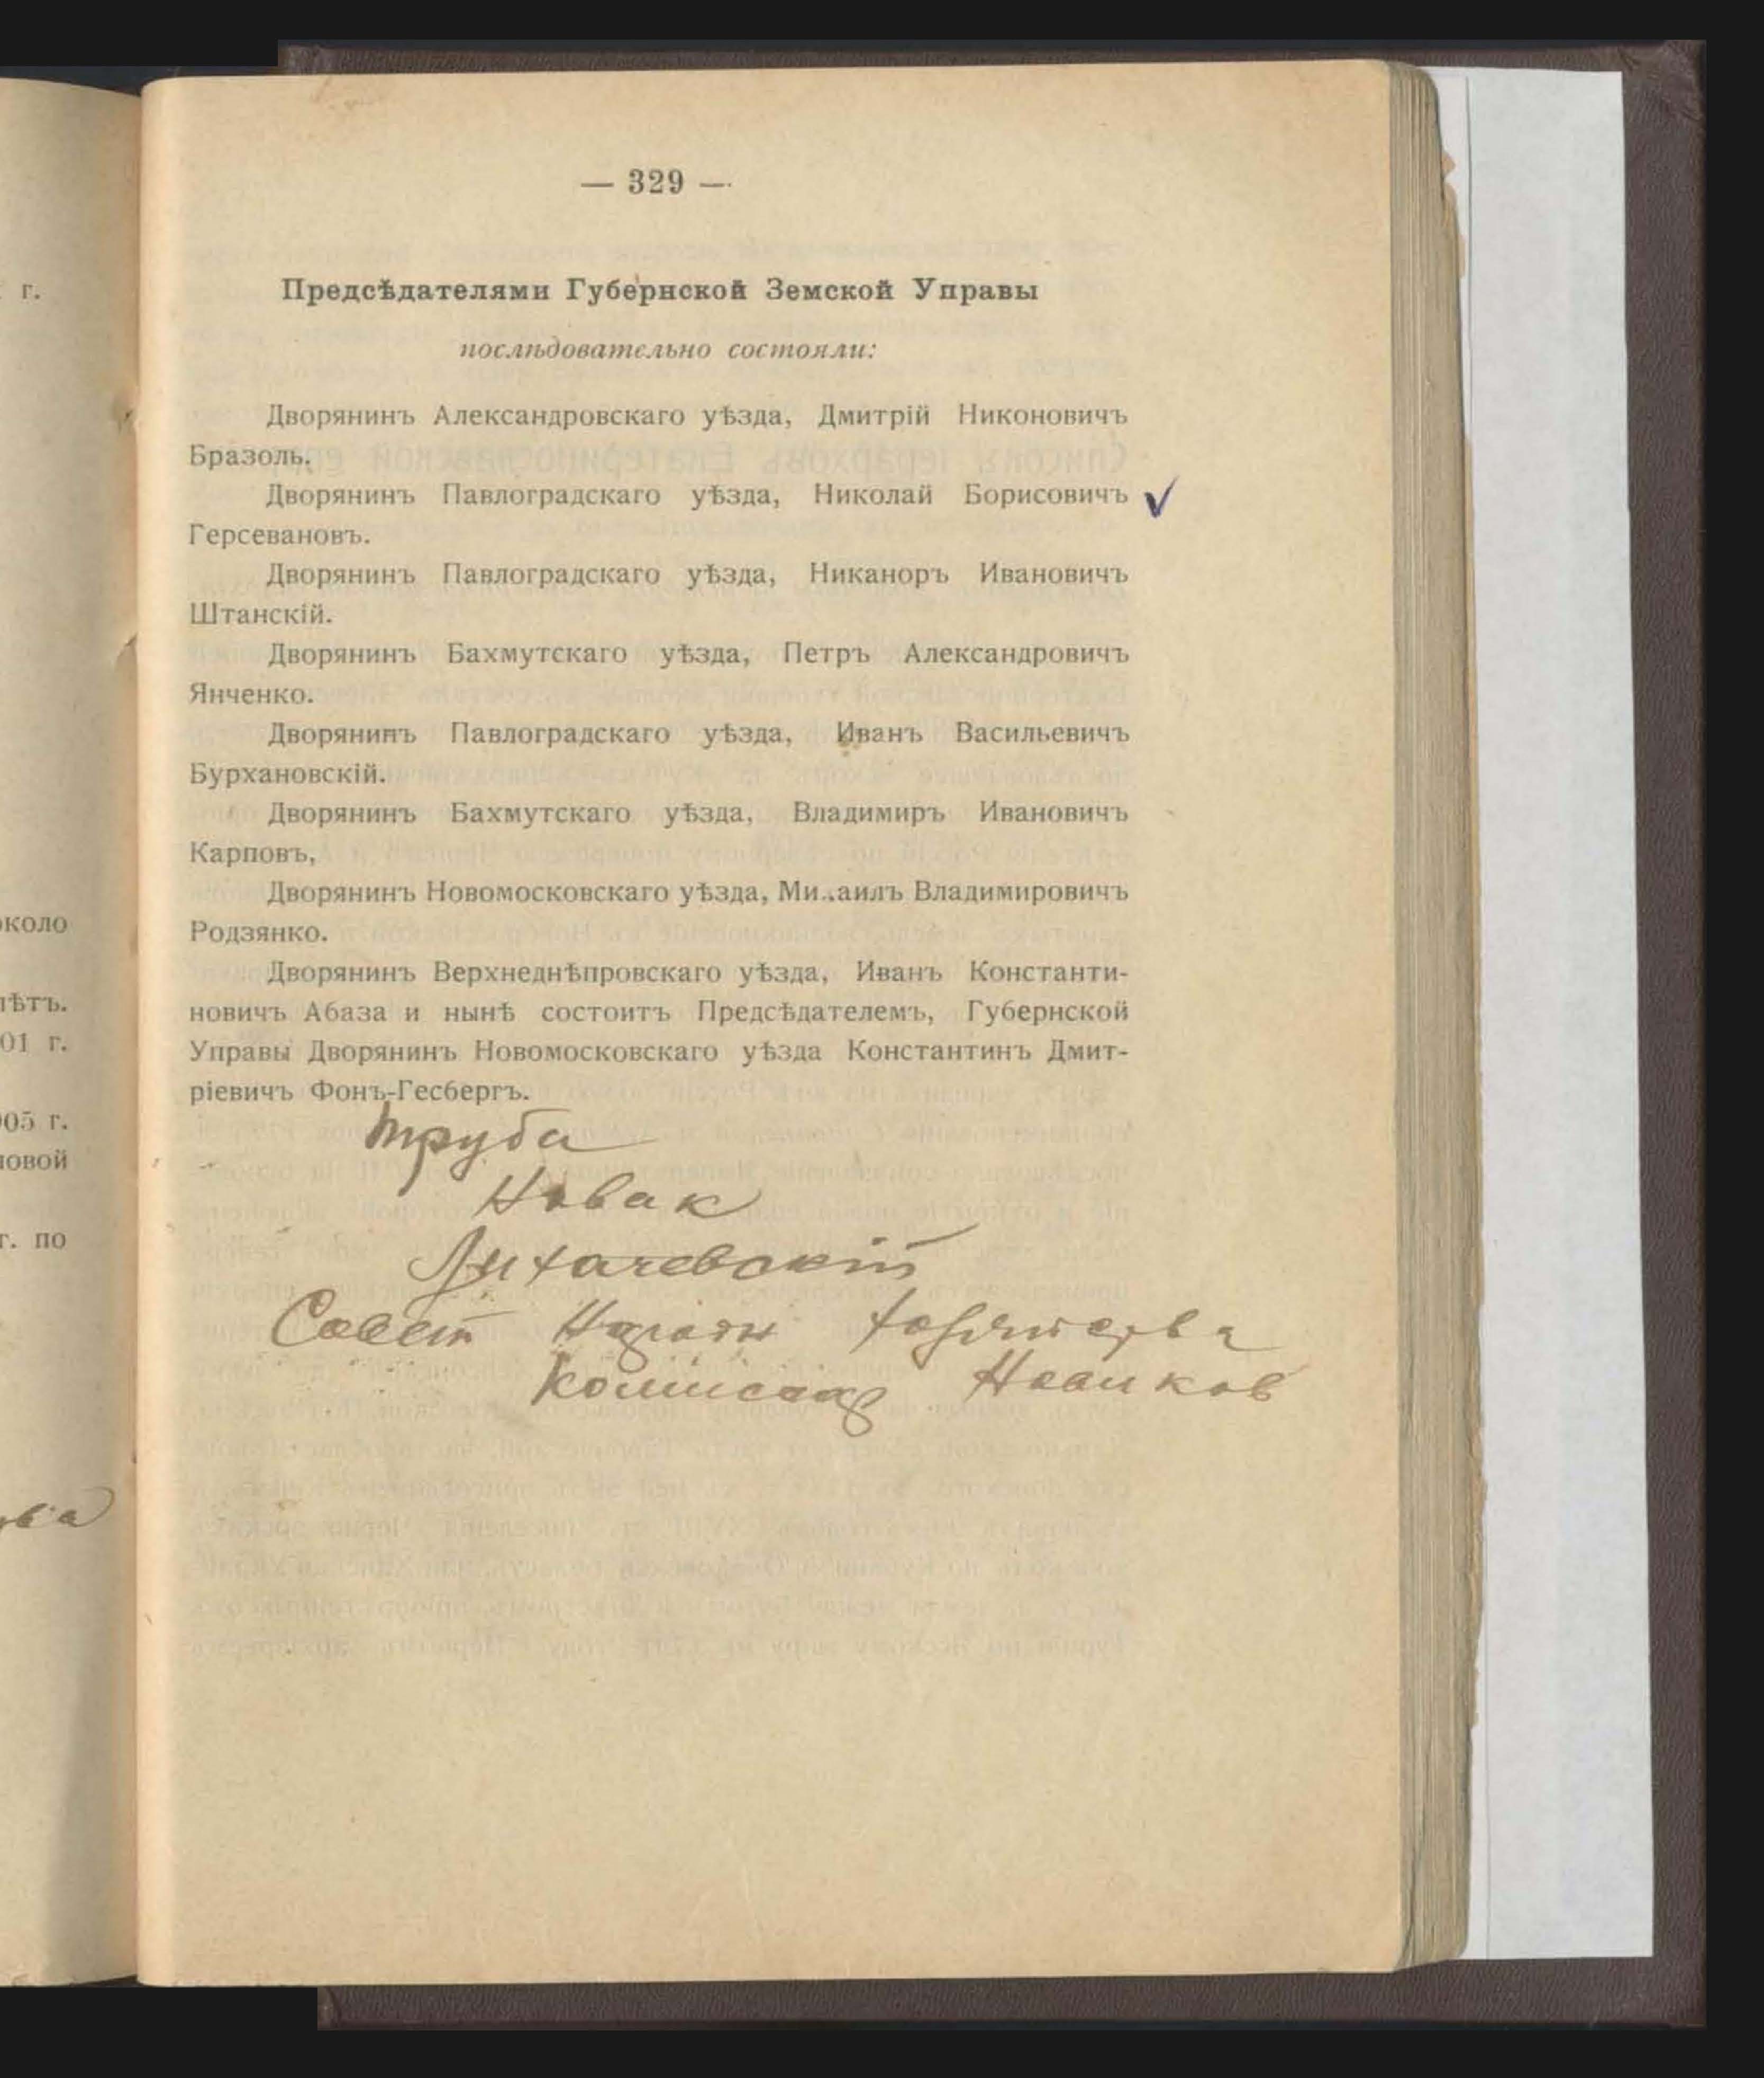 г.
около
лѣтъ.
01 г.
905 г.
новой
г. по
— 329 —
Предсѣдателями Губернской Земской Управы
послѣдовательно состояли:
Дворянинъ Александровскаго уѣзда, Дмитрій Никоновичъ
Бразоль.
Дворянинъ Павлоградскаго уѣзда, Николай Борисовичъ
Герсевановъ.
Дворянинъ Павлоградскаго уѣзда, Никаноръ Ивановичъ
Штанскій.
Дворянинъ Бахмутскаго уѣзда, Петръ Александровичъ
Янченко.
Дворянинъ Павлоградскаго уѣзда, Иванъ Васильевичъ
Бурхановскій.
Дворянинъ Бахмутскаго уѣзда, Владимиръ Ивановичъ
Карповъ,
Дворянинъ Новомосковскаго уѣзда, Михаилъ Владимировичъ
Родзянко.
Дворянинъ Верхнеднѣпровскаго уѣзда, Иванъ Константи-
новичъ Абаза и нынѣ состоитъ Предсѣдателемъ, Губернской
Управы Дворянинъ Новомосковскаго уѣзда Константинъ Дмит-
ріевичъ Фонъ-Гесбергъ.
Труба
Новак
Лихачевскій
Совет
Комиссар Новиков